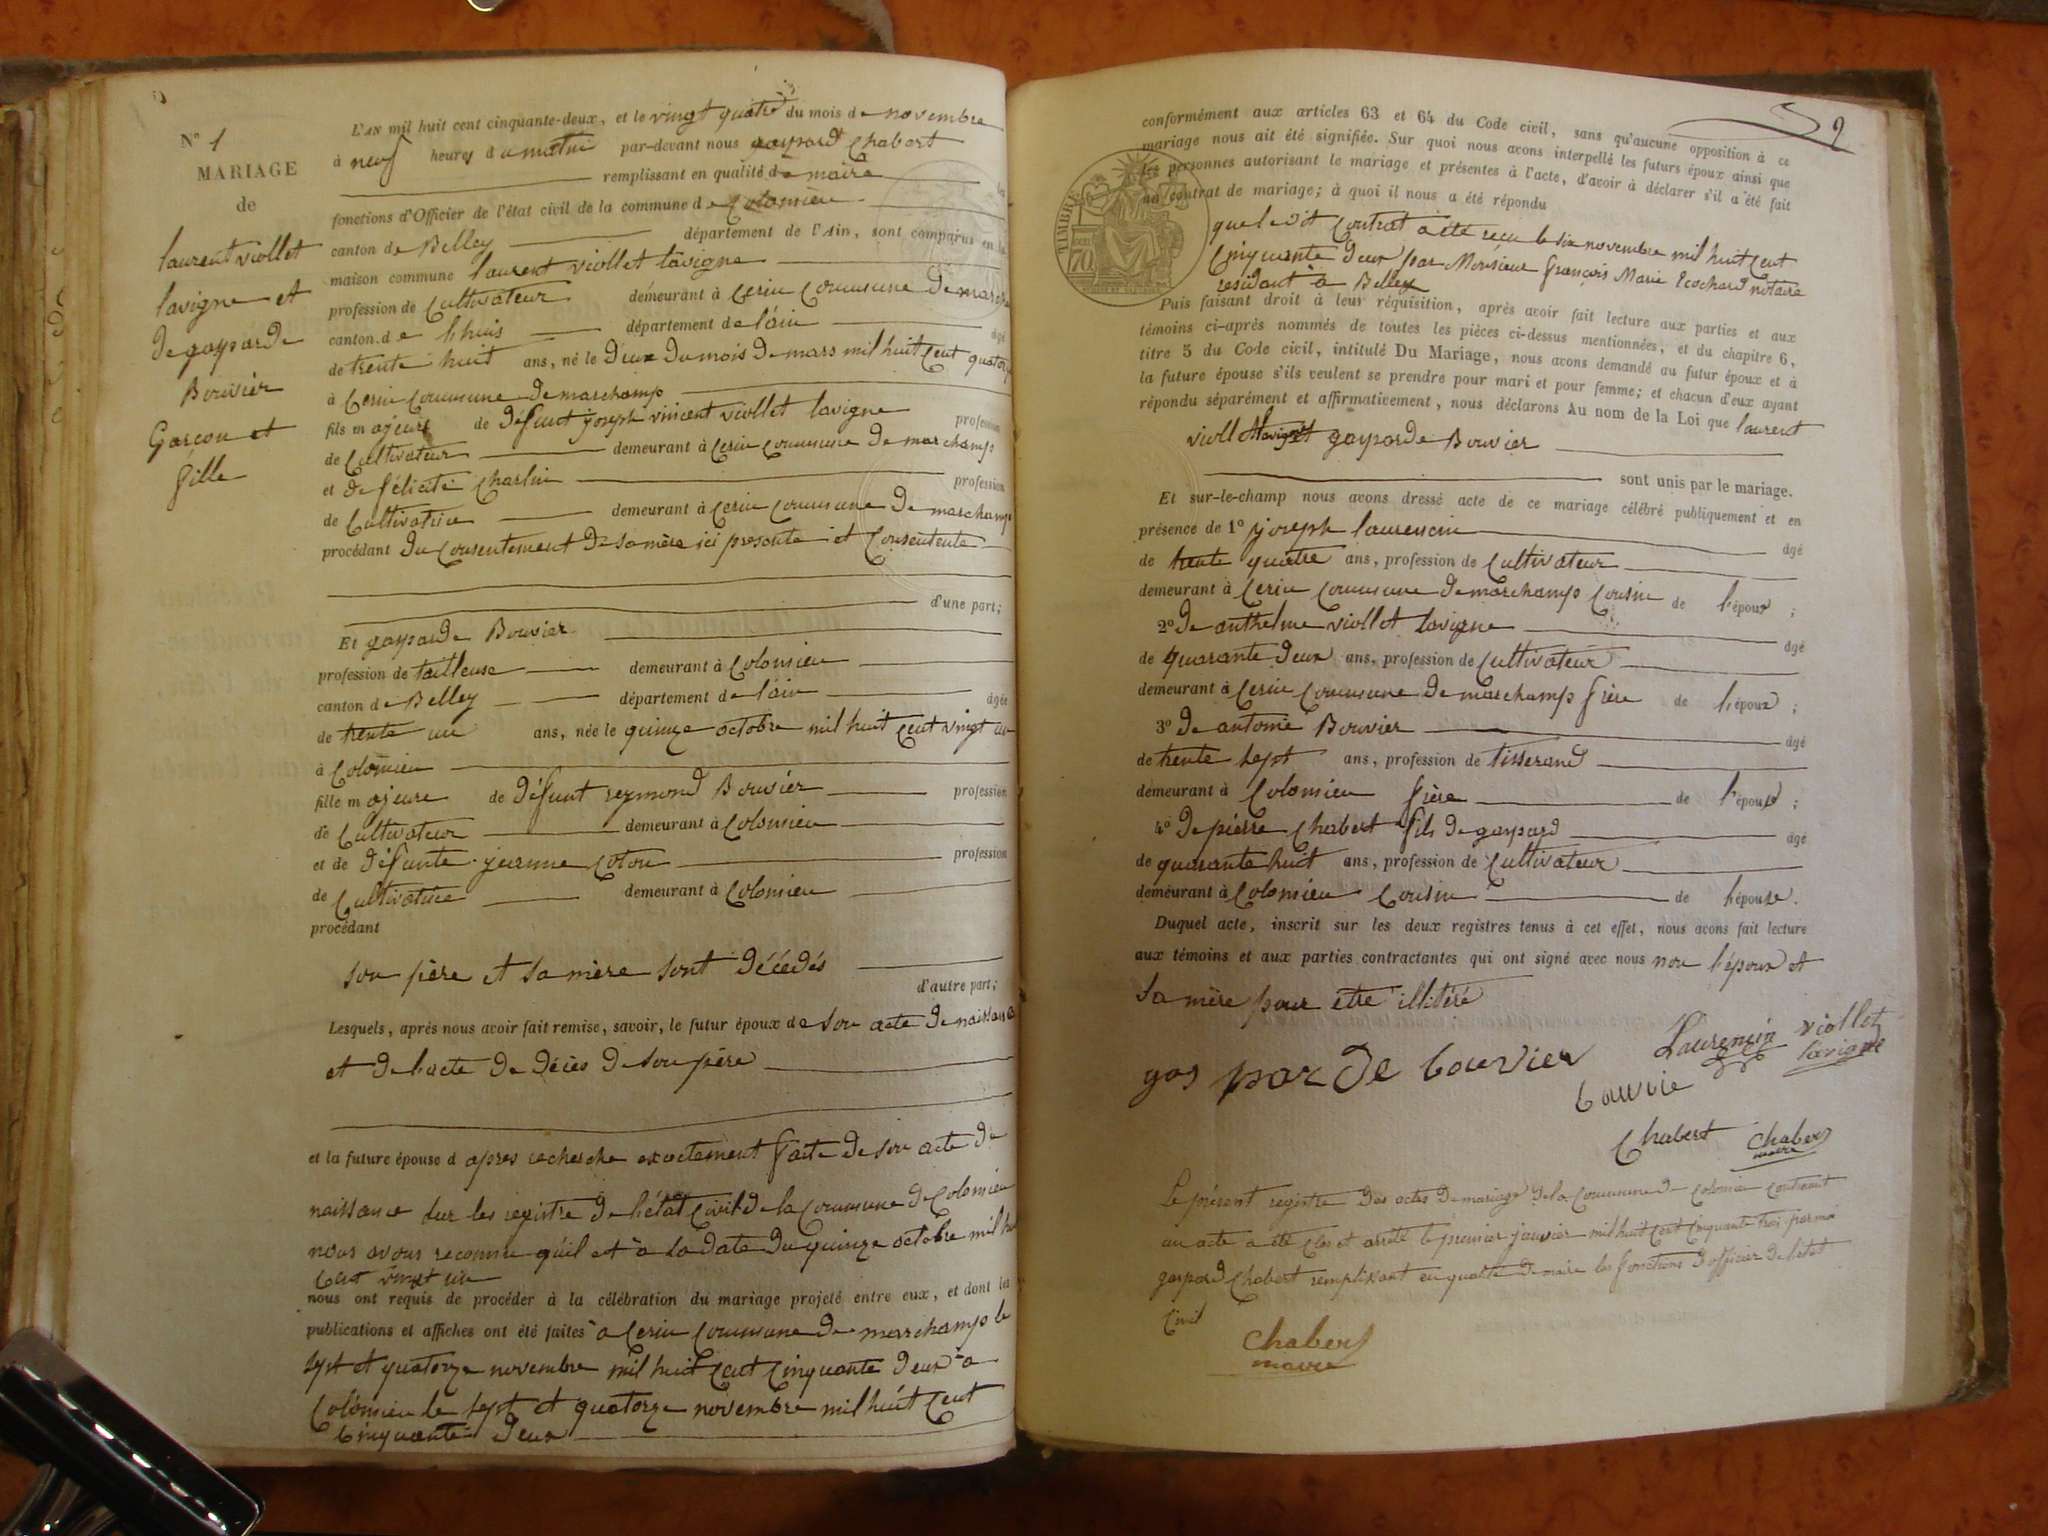 N° 1
MARIAGE
de
laurent viollet
lavigne et
de gasparde
Bouvier
Garçon et
fille
L'AN mil huit cent cinquante-deux, et le vingt quatre du mois de novembre
à neuf heures du matin par-devant nous gaspard Chabert
remplissant en qualité de maire les
fonctions d'Officier de l'état civil de la commune de Colomieu
canton de Belley département de l'Ain, sont comparus en la
maison commune laurent viollet lavigne
profession de Cultivateur demeurant à Cerin Commune de marchamp
canton de lhuis département de l'ain âgé
de trente huit ans, né le deux du mois de mars mil huit Cent quatorze
à Cerin Commune de marchamp
fils majeur de défunt joseph vincent viollet lavigne profession
de Cultivateur demeurant à Cerin Commune de marchamp
et de félicité Charlin profession
de Cultivatrice demeurant à Cerin Commune de marchamp
procédant du Consentement de sa mère ici presente et Consentente
d'une part;
Et gasparde Bouvier
profession de tailleuse demeurant à Colomieu
canton de Belley département de l'ain âgée
de trente un ans, née le quinze octobre mil huit Cent vingt un
à Colomieu
fille majeure de défunt reymond Bouvier profession
de Cultivateur demeurant à Colomieu
et de défunte jeanne Coton profession
de Cultivatrice demeurant à Colomieu
procédant
son père et sa mère sont décédés
d'autre part;
Lesquels, après nous avoir fait remise, savoir, le futur époux de son acte de naissance
et de l'acte de décès de son père
et la future épouse d apres recherche exactement faite de son acte de
naissance sur les registre de l'état Civil de la Commune de Colomieu
nous avons reconnu qu'il et à la date du quinze octobre mil huit
Cent vingt un
nous ont requis de procéder à la célébration du mariage projeté entre eux, et dont les
publications et affiches ont été faites à Cerin Commune de marchamp le
sept et quatorze novembre mil huit Cent Cinquante deux a
Colomieu le sept et quatorze novembre mil huit Cent
Cinquante deux
9
conformément aux articles 63 et 64 du Code civil, sans qu'aucune opposition à ce
mariage nous ait été signifiée. Sur quoi nous avons interpellé les futurs époux ainsi que
les personnes autorisant le mariage et présentes à l'acte, d'avoir à déclarer s'il a été fait
un contrat de mariage; à quoi il nous a été répondu
TIMBRE
70
que le dit Contrat a été recu le six novembre mil huit Cent
Cinquante deux par Monsieur françois Marie Ecochard notaire
residant à Belley
Puis faisant droit à leur réquisition, après avoir fait lecture aux parties et aux
témoins ci-après nommés de toutes les pièces ci-dessus mentionnées, et du chapitre 6,
titre 5 du Code civil, intitulé Du Mariage, nous avons demandé au futur époux et à
la future épouse s'ils veulent se prendre pour mari et pour femme; et chacun d'eux ayant
répondu séparément et affirmativement, nous déclarons Au nom de la Loi que laurent
viollet lavigne et gasparde Bouvier
sont unis par le mariage.
Et sur-le-champ nous avons dressé acte de ce mariage célébré publiquement et en
présence de 1° joseph laurencin âgé
de trente quatre ans, profession de Cultivateur
demeurant à Cerin Commune de marchamp Cousin de l'époux ;
2° de anthelme viollet lavigne âgé
de quarante deux ans, profession de Cultivateur
demeurant à Cerin Commune de marchamp frère de l'époux ;
3° de antoine Bouvier âgé
de trente sept ans, profession de tisserand
demeurant à Colomieu frère de l'épouse ;
4° de pierre Chabert fils de gaspard âgé
de quarante huit ans, profession de Cultivateur
demeurant à Colomieu Cousin de l'épouse.
Duquel acte, inscrit sur les deux registres tenus à cet effet, nous avons fait lecture
aux témoins et aux parties contractantes qui ont signé avec nous non l'époux et
sa mère pour être illitéré
gas par de bouvier Laurencin viollet
lavigne
bouvie
Chabert Chabert
maire
Le présent registre des actes de mariage de la Commune de Colomieu Contenant
un acte a été Clos et arrété le premier janvier mil huit Cent Cinquante trois par moi
gaspard Chabert remplissant en qualité de maire les fonctions d'officier de l'état
Civil
Chabert
maire